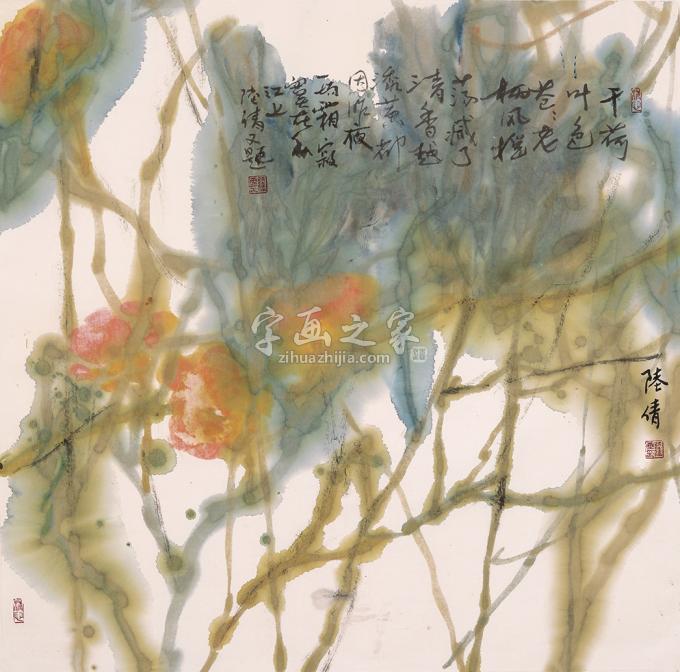 干荷
叶色
苍〻老
柄风摇
荡减了
清香越
添黄都
因昨夜
一场霜寂
寞在秋
江上
陆倩又题
陆倩
字画之家
zihuazhijia.com